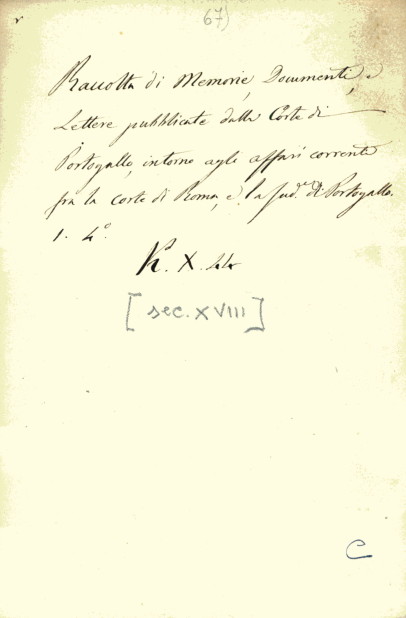 67)
Raccolta di Memorie, Documenti, e
Lettere pubblicate dalla Corte di
Portogallo, intorno agli affari correnti
fra la corte di Roma, e la sud.ª di Portogallo.
1. 4°.
K. X.
[sec. XVIII]
C